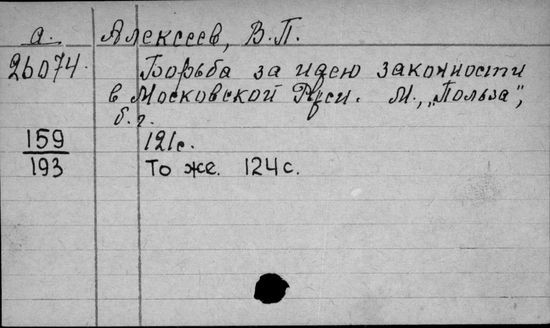 а. Алексеев, В.П.
26074. Борьба за идею законности
в Московской Руси. М., „Польза",
б.г.
159 121с.
193 То же. 124 с.